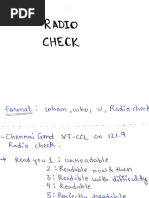 RADIO
CHECK
format : whom, who, v, Radio check
- Chennai Gmd VT-CCL on 121.9
Radio check.
→ Read you 1 : unreadable
2 : Readable now & then
3 : Readable with difficulty
4 : Readable
5 : Perfectly readable